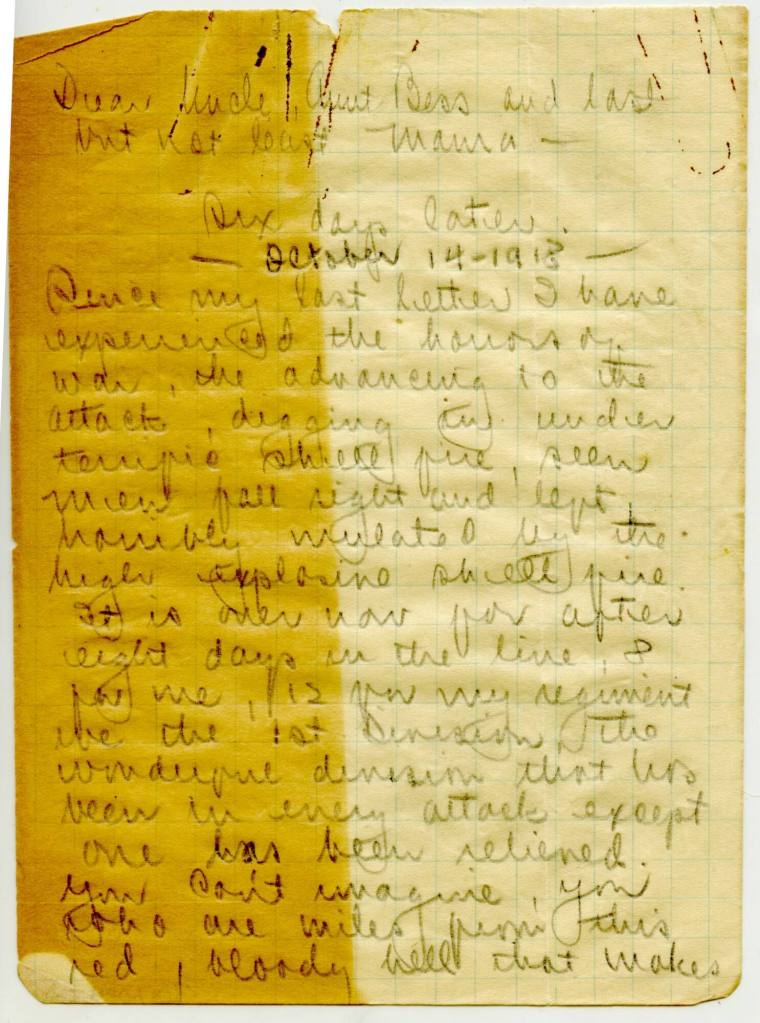 Dear Uncle, Aunt Bess and last
but not least Mama —
Six days later.
— October 14-1918 —
Since my last letter I have
experienced the horrors of
war, the advancing to the
attack, digging in under
terrific shell fire, seen
men fall right and left,
horribly mulated by the
high explosive shell fire.
It is over now for after
eight days in the line, 8
for me, 12 for my regiment
we the 1st Division, the
wonderful division that has
been in every attack except
one has been relieved.
You can't imagine, you
who are miles from this
red, bloody hell that makes